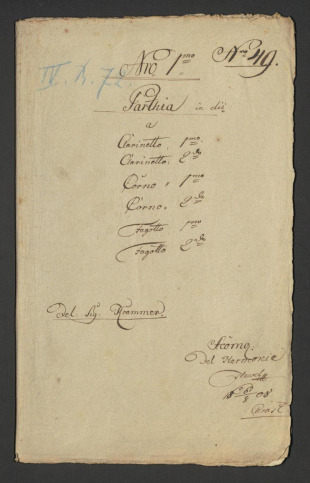 Nro 1mo Nro 49.
IV. A. 72
Parthia in dis
a
Clarinetto. 1mo
Clarinetto. 2do
Corno. 1mo
Corno. 2do
Fagotto 1mo
Fagotto 2do
Del Sig. Krommer.
Del Harmonie
08